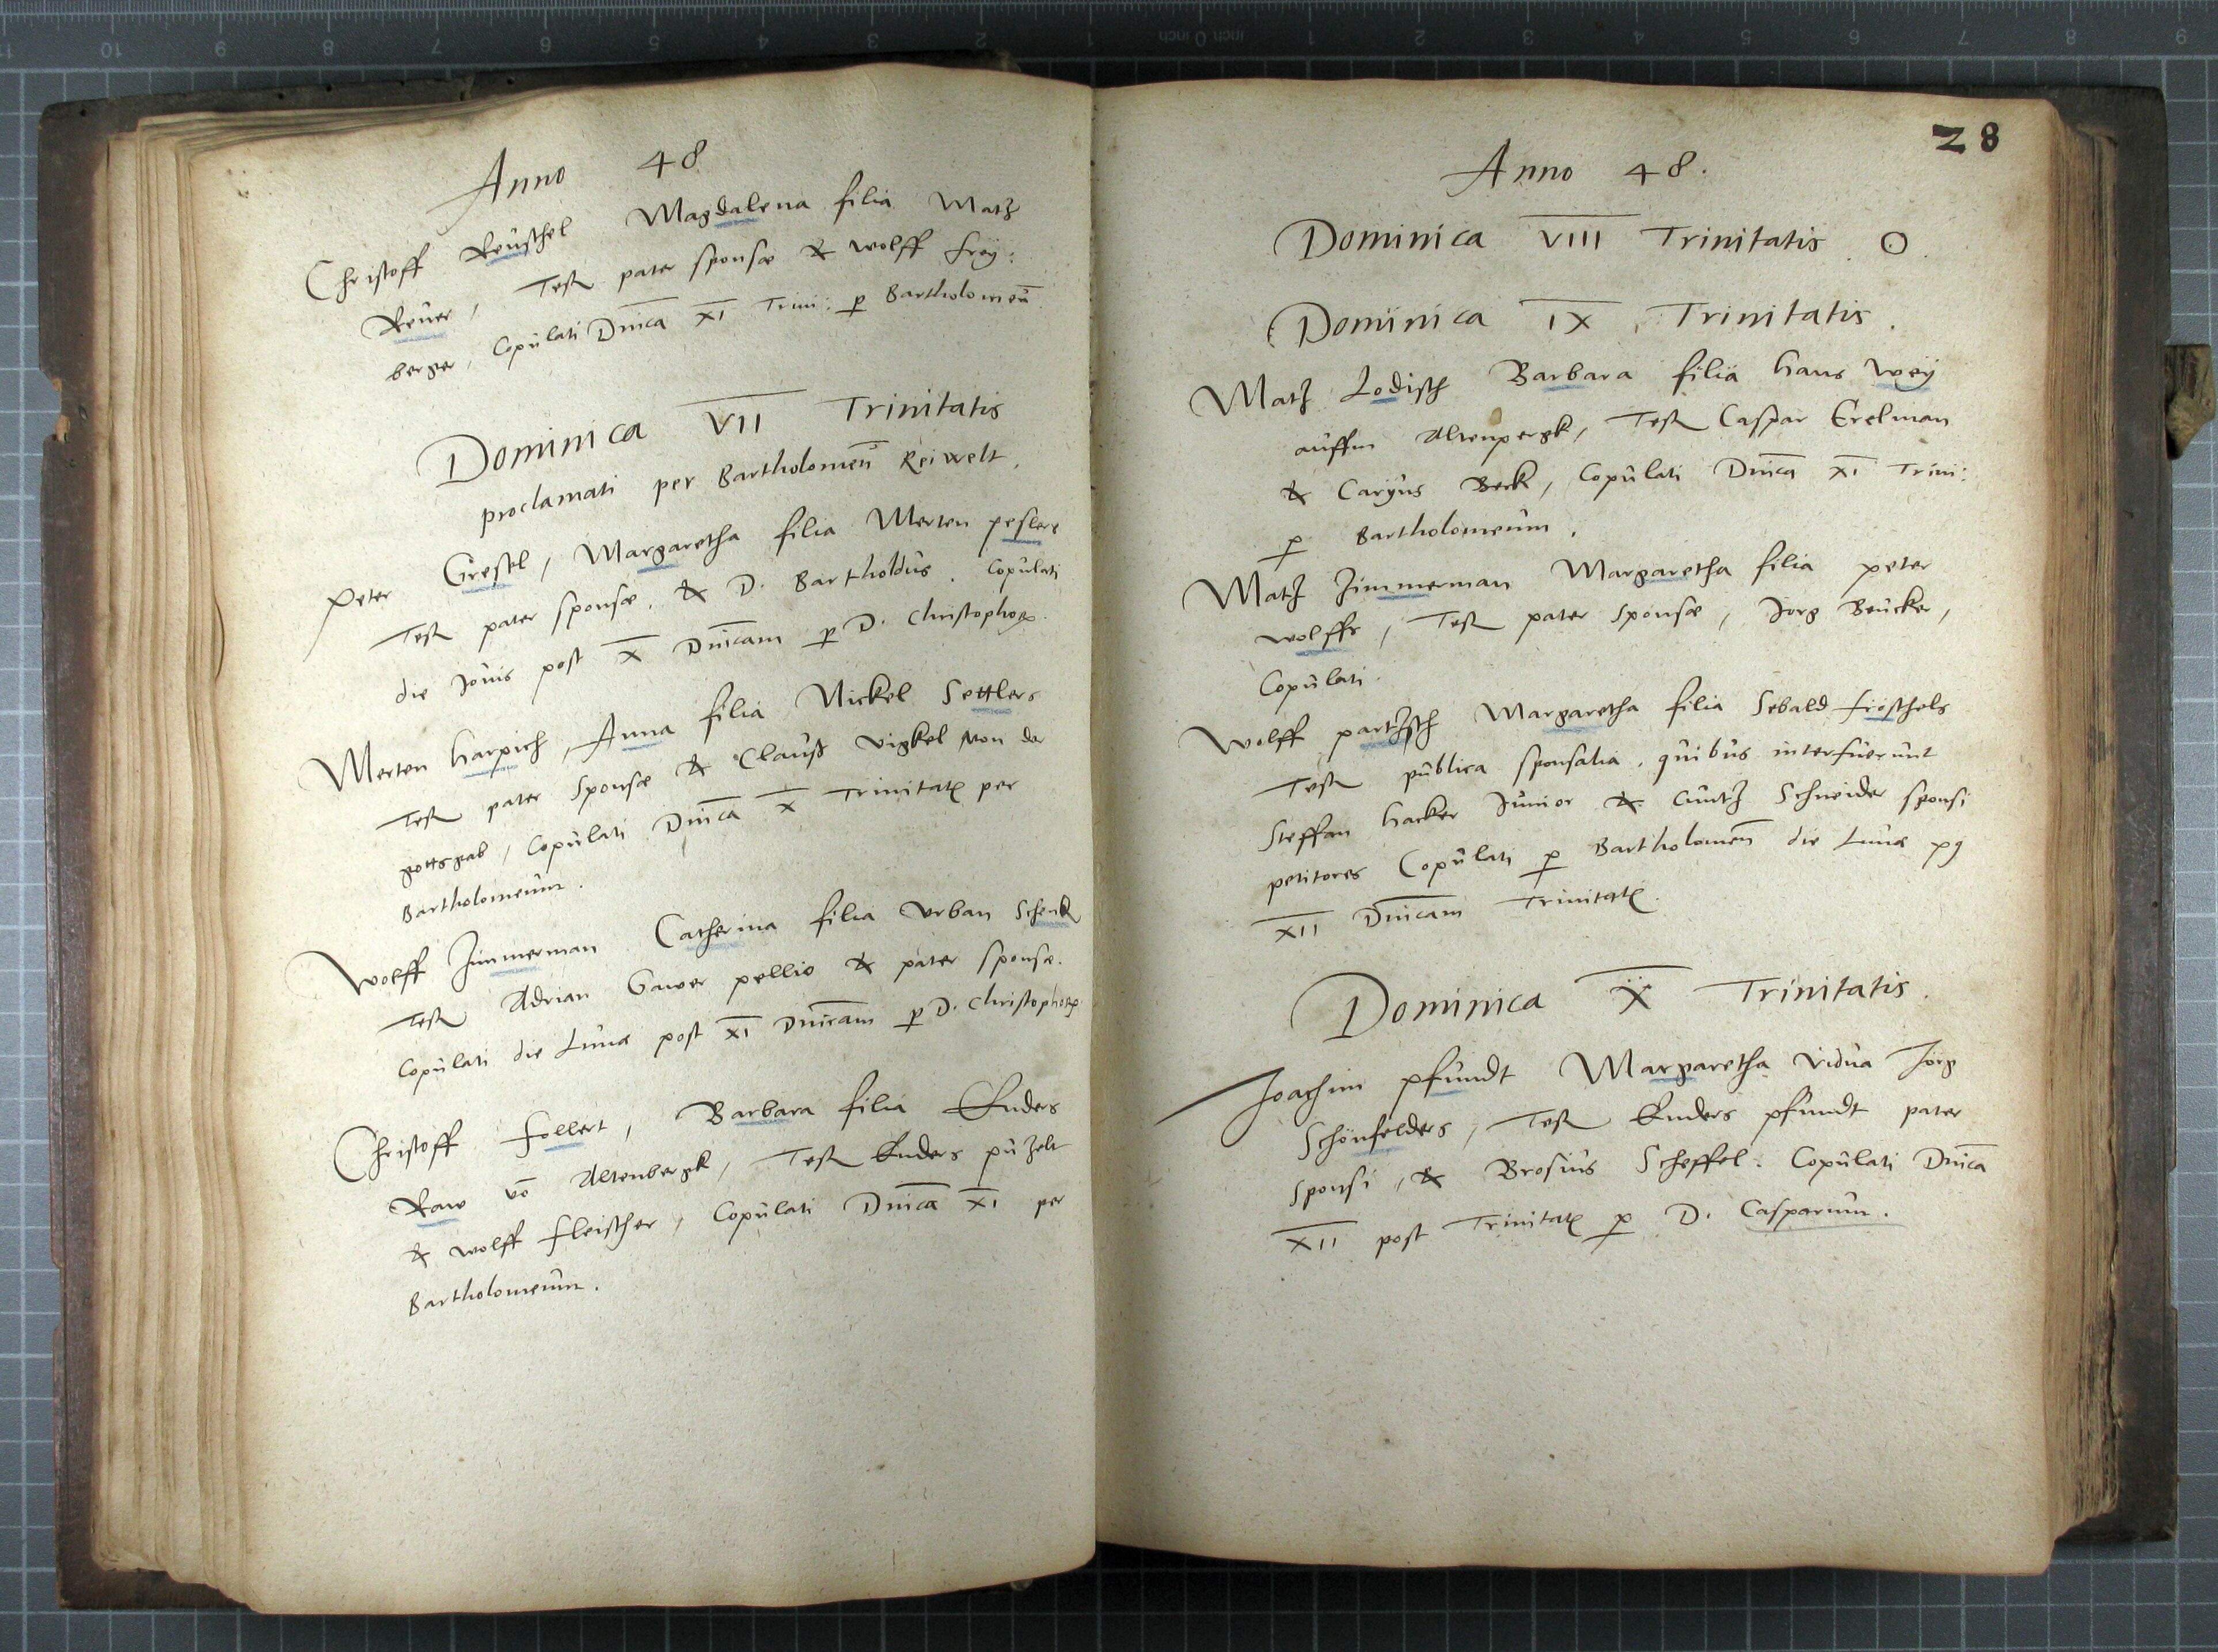 Anno 48
Christoff Reuschel Magdalena filia Matz
Reuer, Test pater sponsæ & Wolff Frey:
berger, Copulati Dnica XI Trini: p Bartholomeū
Dominica VII Trinitatis
proclamati per Bartholomeū Reiwelt.
Peter Gresel, Margaretha filia Merten peslers
Test pater sponsæ, & D. Bartholdus. Copulati
die Jouis post X Dnicam p D. Christophor
Merten Harpich, Anna filia Nickel Settlers
Test pater sponsæ & Clauß Vigkel von der
gottsgab, Copulati Dnica X Trinitat per
Bartholomeum.
Wolff Zimmerman Catherina filia Vrban Schenk
Test Adrian Gawer pellio & pater sponsæ.
Copulati die Lunæ post XI Dnicam p D. Christophor
Christoff Follert, Barbara filia Enders
Raw vō Altenbergk, Test Enders puzelt
& Wolff Fleischer, Copulati Dnica XI per
Bartholomeum.
28
Anno 48.
Dominica VIII Trinitatis . O.
Dominica IX Trinitatis.
Matz Lodisch Barbara filia Hans Wey
auffm Altenpergk, Test Caspar Erelman
& Carius Beck, Copulati Dnica XI Trini:
p Bartholomeum.
Matz Zimmerman Margaretha filia peter
Wolffs, Test pater sponsæ, Jorg Beucker,
Copulati.
Wolff partzsch Margaretha filia Sebald Fröschels
Test publica sponsalia, quibus interfuerunt
Steffan Hacker Junior & Cuntz Schneider sponsi
petitores Copulati p Bartholomeū die Lunæ p9
XII Dnicam Trinitat.
Dominica X Trinitatis.
Joachim pfundt Margaretha vidua Jörg
Schönfelders, Test Enders pfundt pater
sponsi, & Brosius Scheffel. Copulati Dnica
XII post Trinitat p D. Casparum.